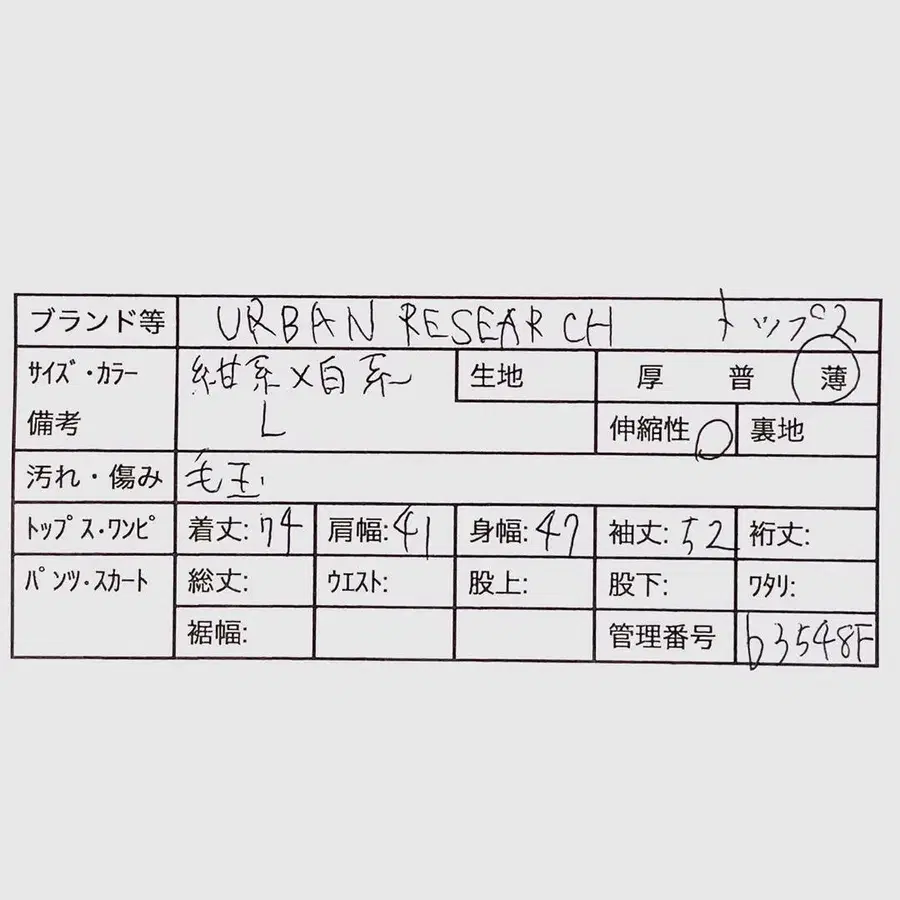 ブランド等 URBAN RESEARCH トップス
サイズ・カラー 紺系×白系 生地 厚 普 薄
備考 L 伸縮性 ○ 裏地
汚れ・傷み 毛玉
トップス・ワンピ 着丈:74 肩幅:41 身幅:47 袖丈:52 裄丈:
パンツ・スカート 総丈: ウエスト: 股上: 股下: ワタリ:
裾幅: 管理番号 b3548F